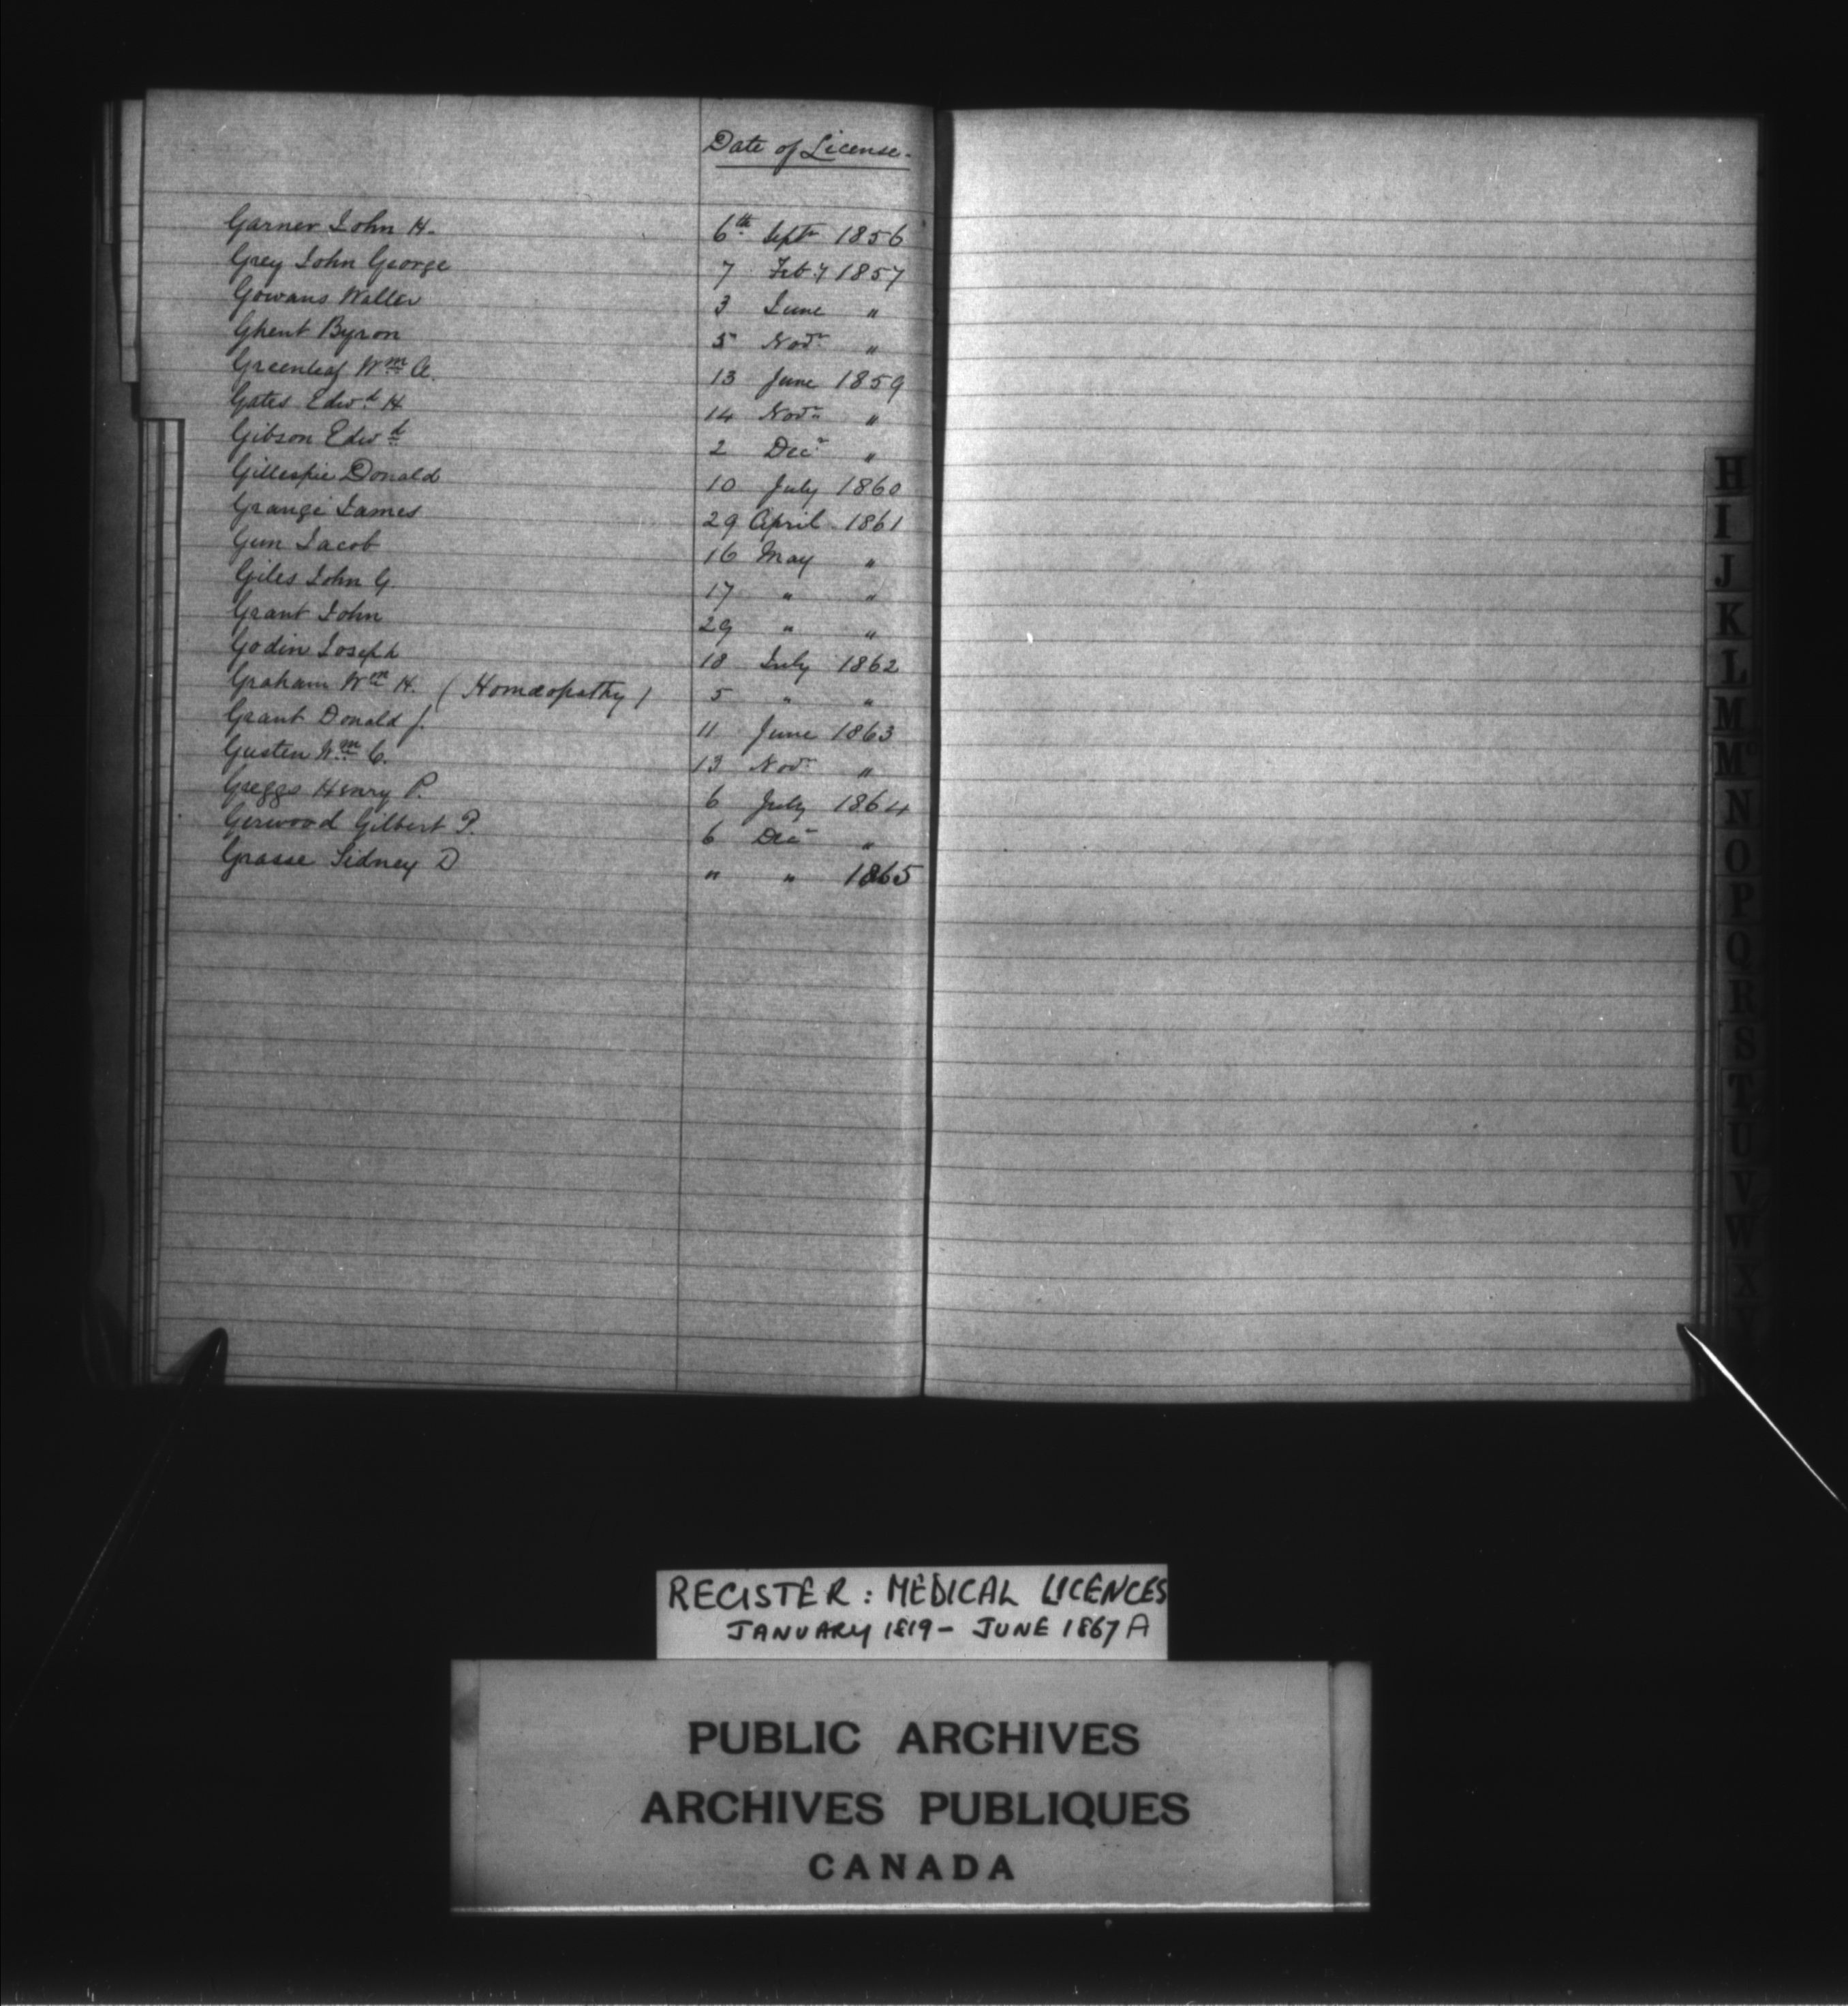 Date of License.
Garner John H. 6th Sept 1856
Grey John George 7 Feby 1857
Gowans Walter 3 June "
Ghent Byron 5 Novr "
Greenleaf Wm A. 13 June 1859
Gates Edwd H 14 Novr "
Gibson Edwd 2 Decr "
Gillespie Donald 10 July 1860
Grange James 29 April 1861
Gun Jacob 16 May "
Giles John G. 17 " "
Grant John 29 " "
Godin Joseph 18 July 1862
Graham Wm H. (Homœopathy) 5 " "
Grant Donald J. 11 June 1863
Gustin Wm C. 13 Novr "
Greggs Henry P. 6 July 1864
Girwood Gilbert P. 6 Decr "
Grasse Sidney D " " 1865
H
I
J
K
L
M
Mc
N
O
P
Q
R
S
T
U
V
W
X
Y
REGISTER: MEDICAL LICENCES
JANUARY 1819 - JUNE 1867 A
PUBLIC ARCHIVES
ARCHIVES PUBLIQUES
CANADA